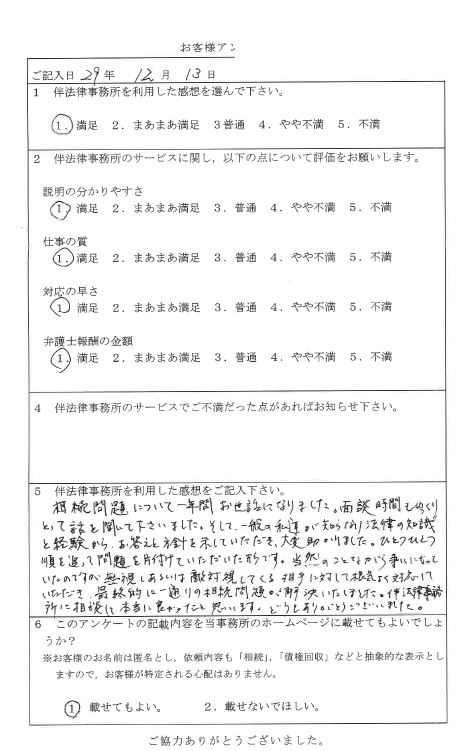 お客様アン
ご記入日 29年 12月 13日
1 伴法律事務所を利用した感想を選んで下さい。
1．満足 2．まあまあ満足 3普通 4．やや不満 5．不満
2 伴法律事務所のサービスに関し，以下の点について評価をお願いします。
説明の分かりやすさ
1．満足 2．まあまあ満足 3．普通 4．やや不満 5．不満
仕事の質
1．満足 2．まあまあ満足 3．普通 4．やや不満 5．不満
対応の早さ
1．満足 2．まあまあ満足 3．普通 4．やや不満 5．不満
弁護士報酬の金額
1．満足 2．まあまあ満足 3．普通 4．やや不満 5．不満
4 伴法律事務所のサービスでご不満だった点があればお知らせ下さい。
5 伴法律事務所を利用した感想をご記入下さい。
相続問題について一年間お世話になりました。面談時間もゆっくり
とって話を聞いて下さいました。そして、一般の私達が知らない法律の知識
と経験から、お答えと方針を示していただき、大変助かりました。ひとつひとつ
順を追って問題を片付けていただいた形です。当然のことながら争いになって
いたのですが、無視しあるいは敵対視してくる相手に対して根気よく対応して
いただき、最終的に一通りの相続問題が解決いたしました。伴法律事務
所に相談して本当に良かったと思います。どうもありがとうございました。
6 このアンケートの記載内容を当事務所のホームページに載せてもよいでしょ
うか？
※お客様のお名前は匿名とし，依頼内容も「相続」，「債権回収」などと抽象的な表示とし
ますので，お客様が特定される心配はありません。
1 載せてもよい。 2．載せないでほしい。
ご協力ありがとうございました。